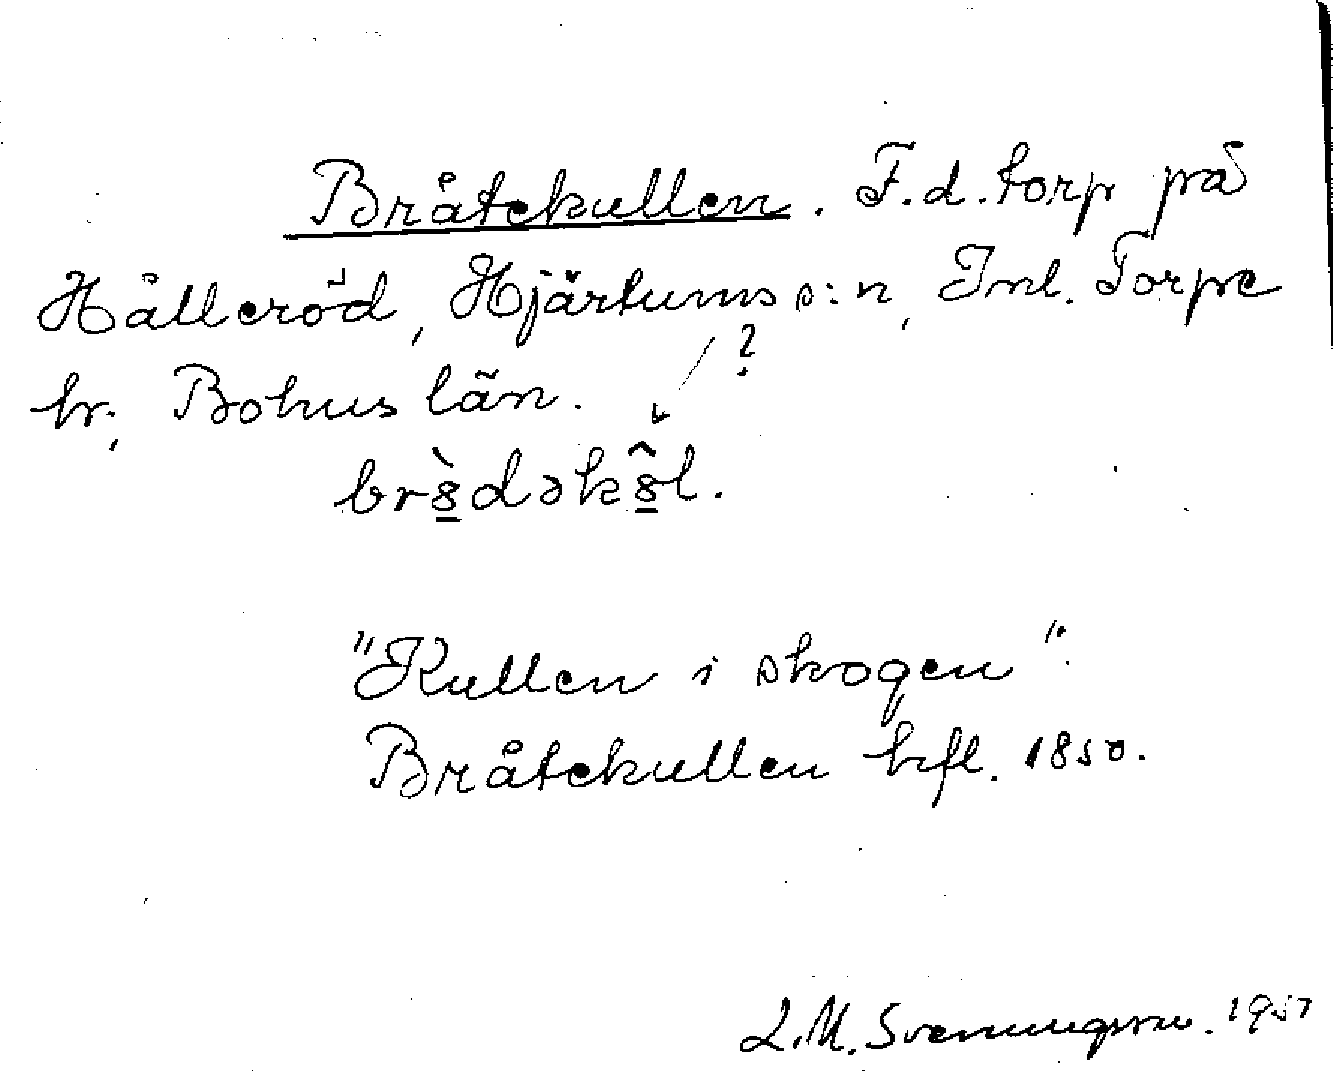 Bråtekullen. F.d. torp på
Hålleröd, Hjärtums s:n, Inl. Torpe
hr., Bohus län.
?
br8̲̀dək8̲̂l.
"Kullen i skogen".
Bråtekullen hfl. 1850.
L.M. Svenungsson. 1957